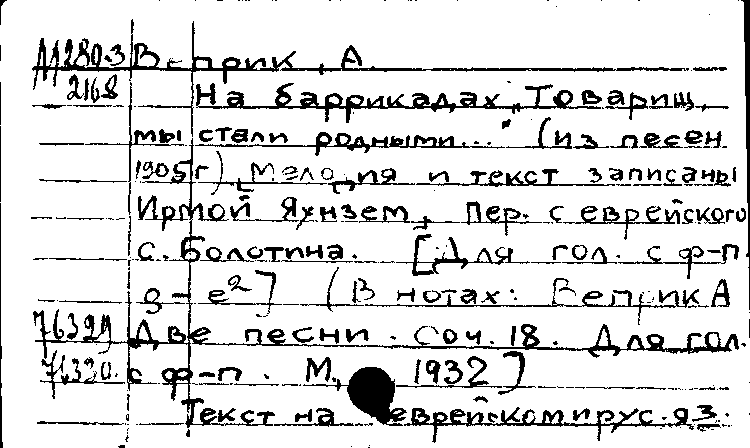 М280-3 Веприк, А.
2168 На баррикадах „Товарищ,
мы стали родными..." (из песен
1905г). Мелодия и текст записаны
Ирмой Яунзем, Пер. с еврейского
с. Болотина. [Для гол. с ф-п.
g - e²] (В нотах: Веприк А
76329 Две песни. Соч. 18. Для гол.
76330. с ф-п. М., 1932)
Текст на еврейском и рус. яз.